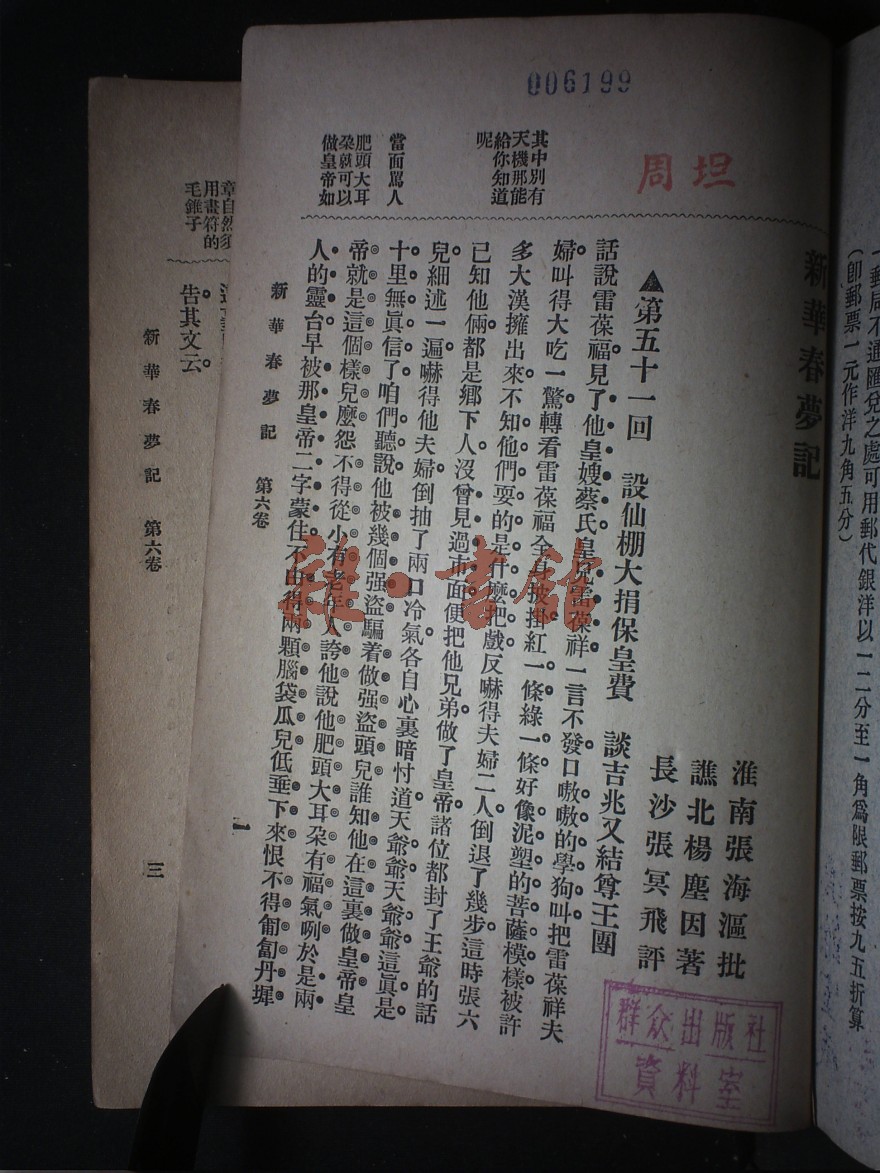 一郵局不通匯兌之處可用郵代銀洋以一二分至一角爲限郵票按九五折算
(卽郵票一元作洋九角五分)
006199
周坦
新華春夢記
淮南張海漚批
譙北楊塵因著
長沙張冥飛評
▲第五十一回 設仙棚大捐保皇費 談吉兆又結尊王團
話說雷葆福見了他皇嫂蔡氏皇兄雷葆祥一言不發口嗷嗷的學狗叫把雷葆祥夫
婦叫得大吃一驚轉看雷葆福全身披掛紅一條綠一條好像泥塑的菩薩模樣被許
多大漢擁出來不知他們耍的是什麼把戲反嚇得夫婦二人倒退了幾步這時張六
已知他倆都是鄉下人沒曾見過市面便把他兄弟做了皇帝諸位都封了王爺的話
兒細述一遍嚇得他夫婦倒抽了兩口冷氣各自心裏暗忖道天爺爺天爺爺這眞是
十里無眞信了咱們聽說他被幾個强盜騙着做强盜頭兒誰知他在這裏做皇帝皇
帝就是這個樣兒麼怨不得從小有老年人誇他說他肥頭大耳朶有福氣咧於是兩
人的靈台早被那皇帝二字蒙住不由得兩顆腦袋瓜兒低垂下來恨不得匍匐丹墀
其中別有
天機那能
給你知道
呢
當面駡人
肥頭大耳
朶就可以
做皇帝如
新華春夢記 第六卷
一
雜·書館
群众出版社
資料室
章自然須
用畫符的
毛錐子
告其文云
新華春夢記 第六卷
三